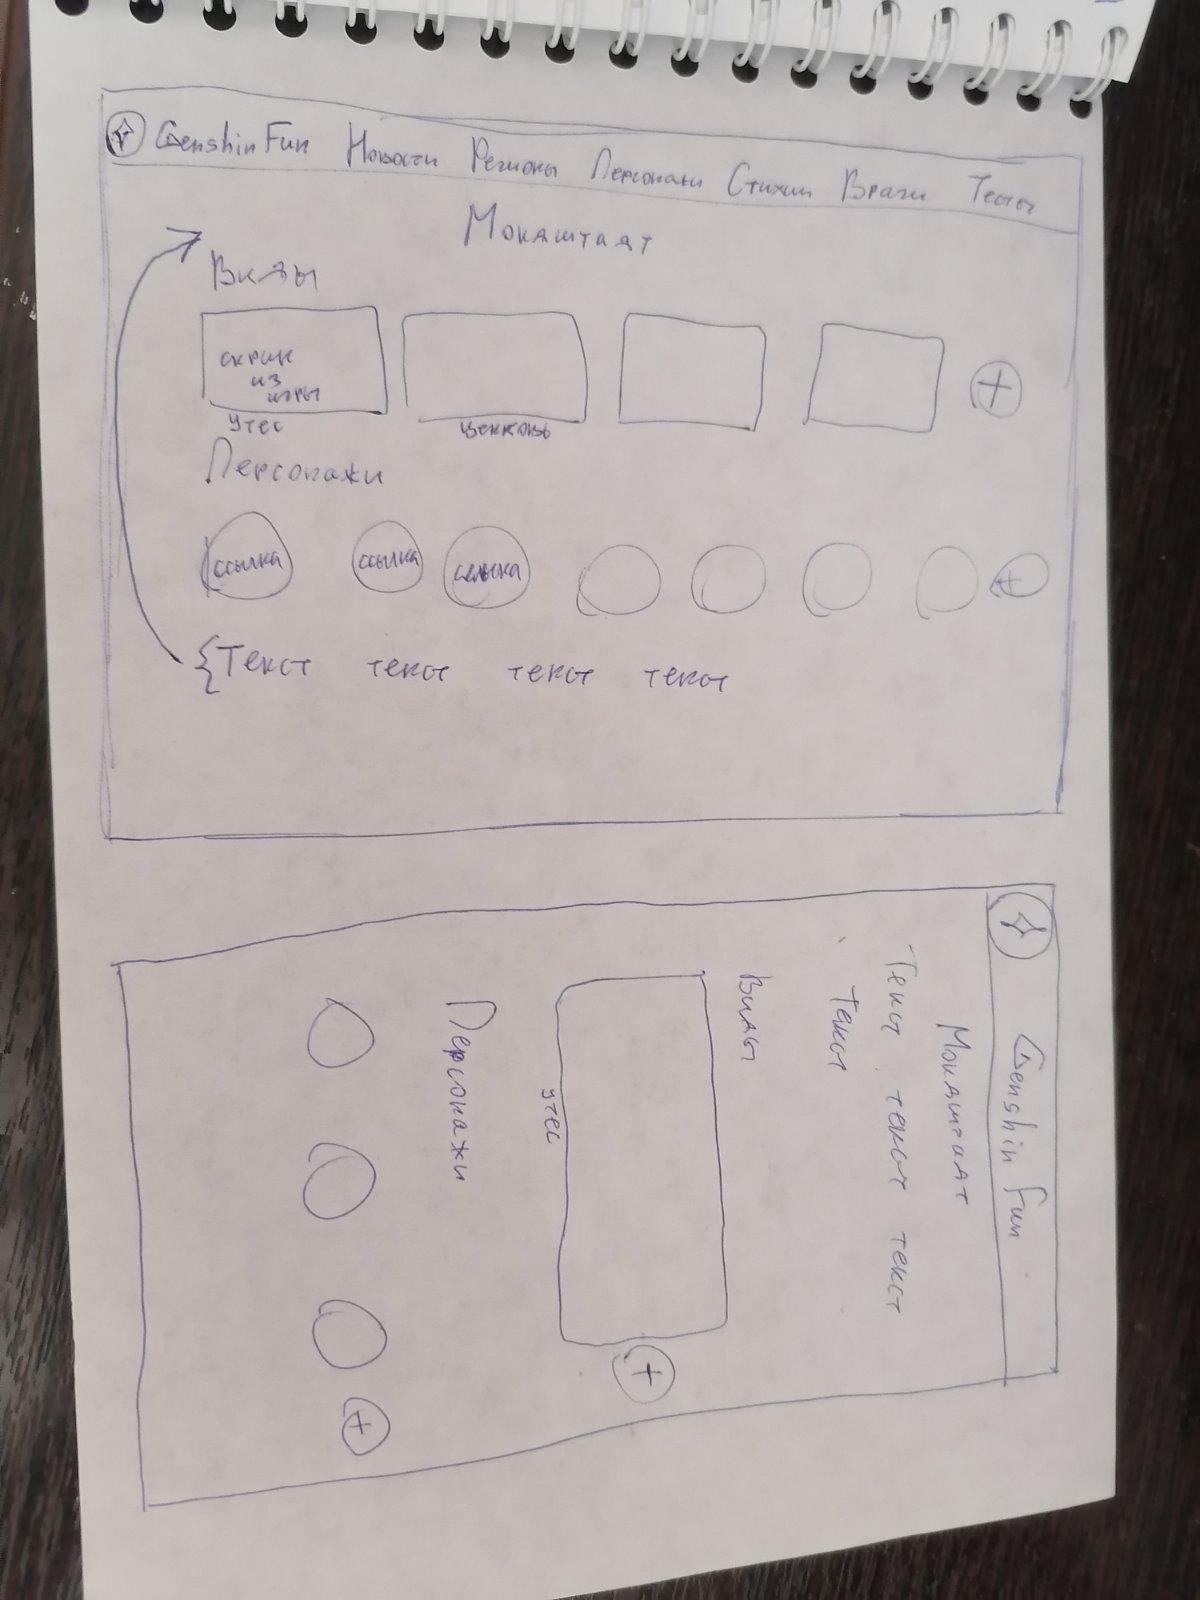 Genshin Fun Новости Регионы Персонажи Стихии Враги Тесты
Мондштадт
Виды
скрин
из
игры
утес церковь
Персонажи
ссылка ссылка ссылка
{Текст текст текст текст
Genshin Fun
Мондштадт
Текст текст текст
Текст
Виды
утес
Персонажи